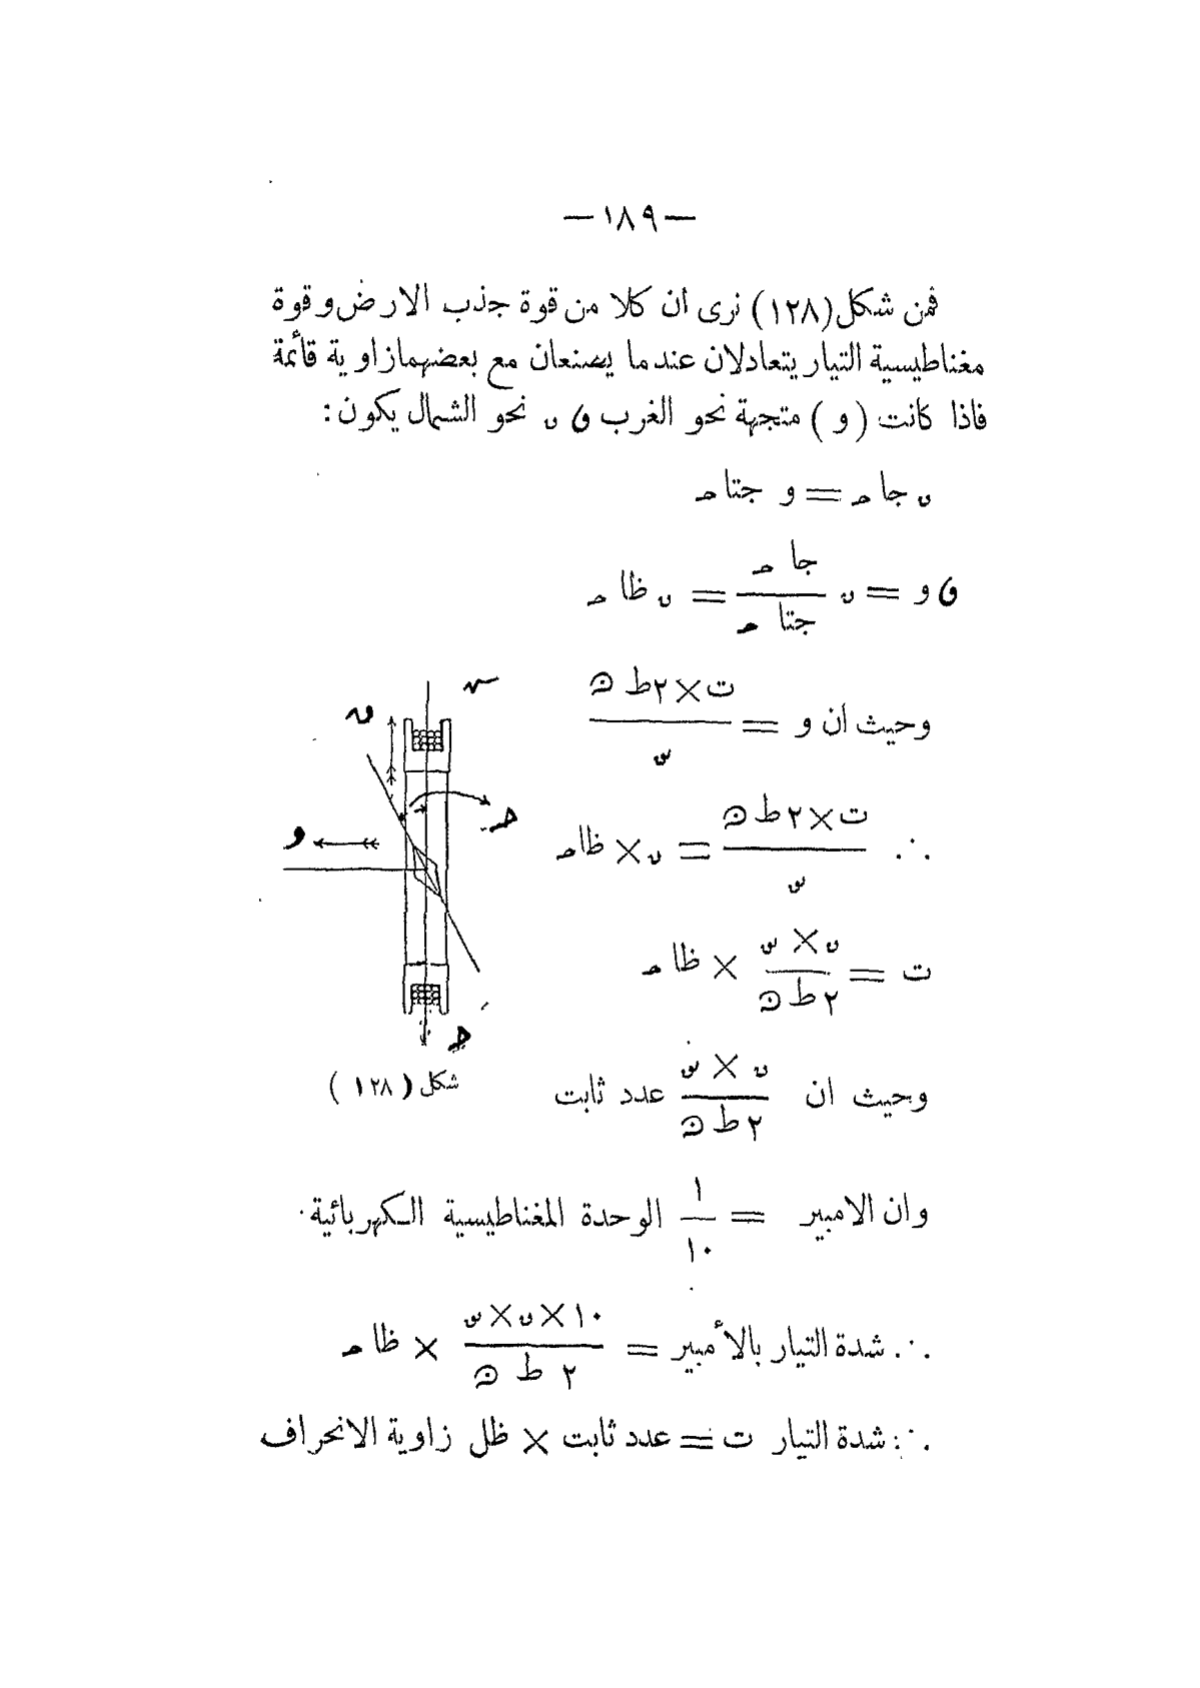 —١٨٩—
فمن شكل (١٢٨) نرى ان كلا من قوة جذب الارض وقوة
مغناطيسية التيار يتعادلان عندما يصنعان مع بعضهما زاوية قائمة
فاذا كانت (و) متجهة نحو الغرب و ں نحو الشمال يكون:
ں جا حـ = و جتا حـ
و و = ں جا حـ / جتا حـ = ں ظا حـ
وحيث ان و = ت × ٢ ط ن / س
∴ ت × ٢ ط ن / س = ں × ظا حـ
ت = ں × س / ٢ ط ن × ظا حـ
وحيث ان ں × س / ٢ ط ن عدد ثابت
شكل (١٢٨)
وان الامبير = ١ / ١٠ الوحدة المغناطيسية الكهربائية.
∴ شدة التيار بالأمبير = ١٠ × ں × س / ٢ ط ن × ظا حـ
∴ شدة التيار ت = عدد ثابت × ظل زاوية الانحراف